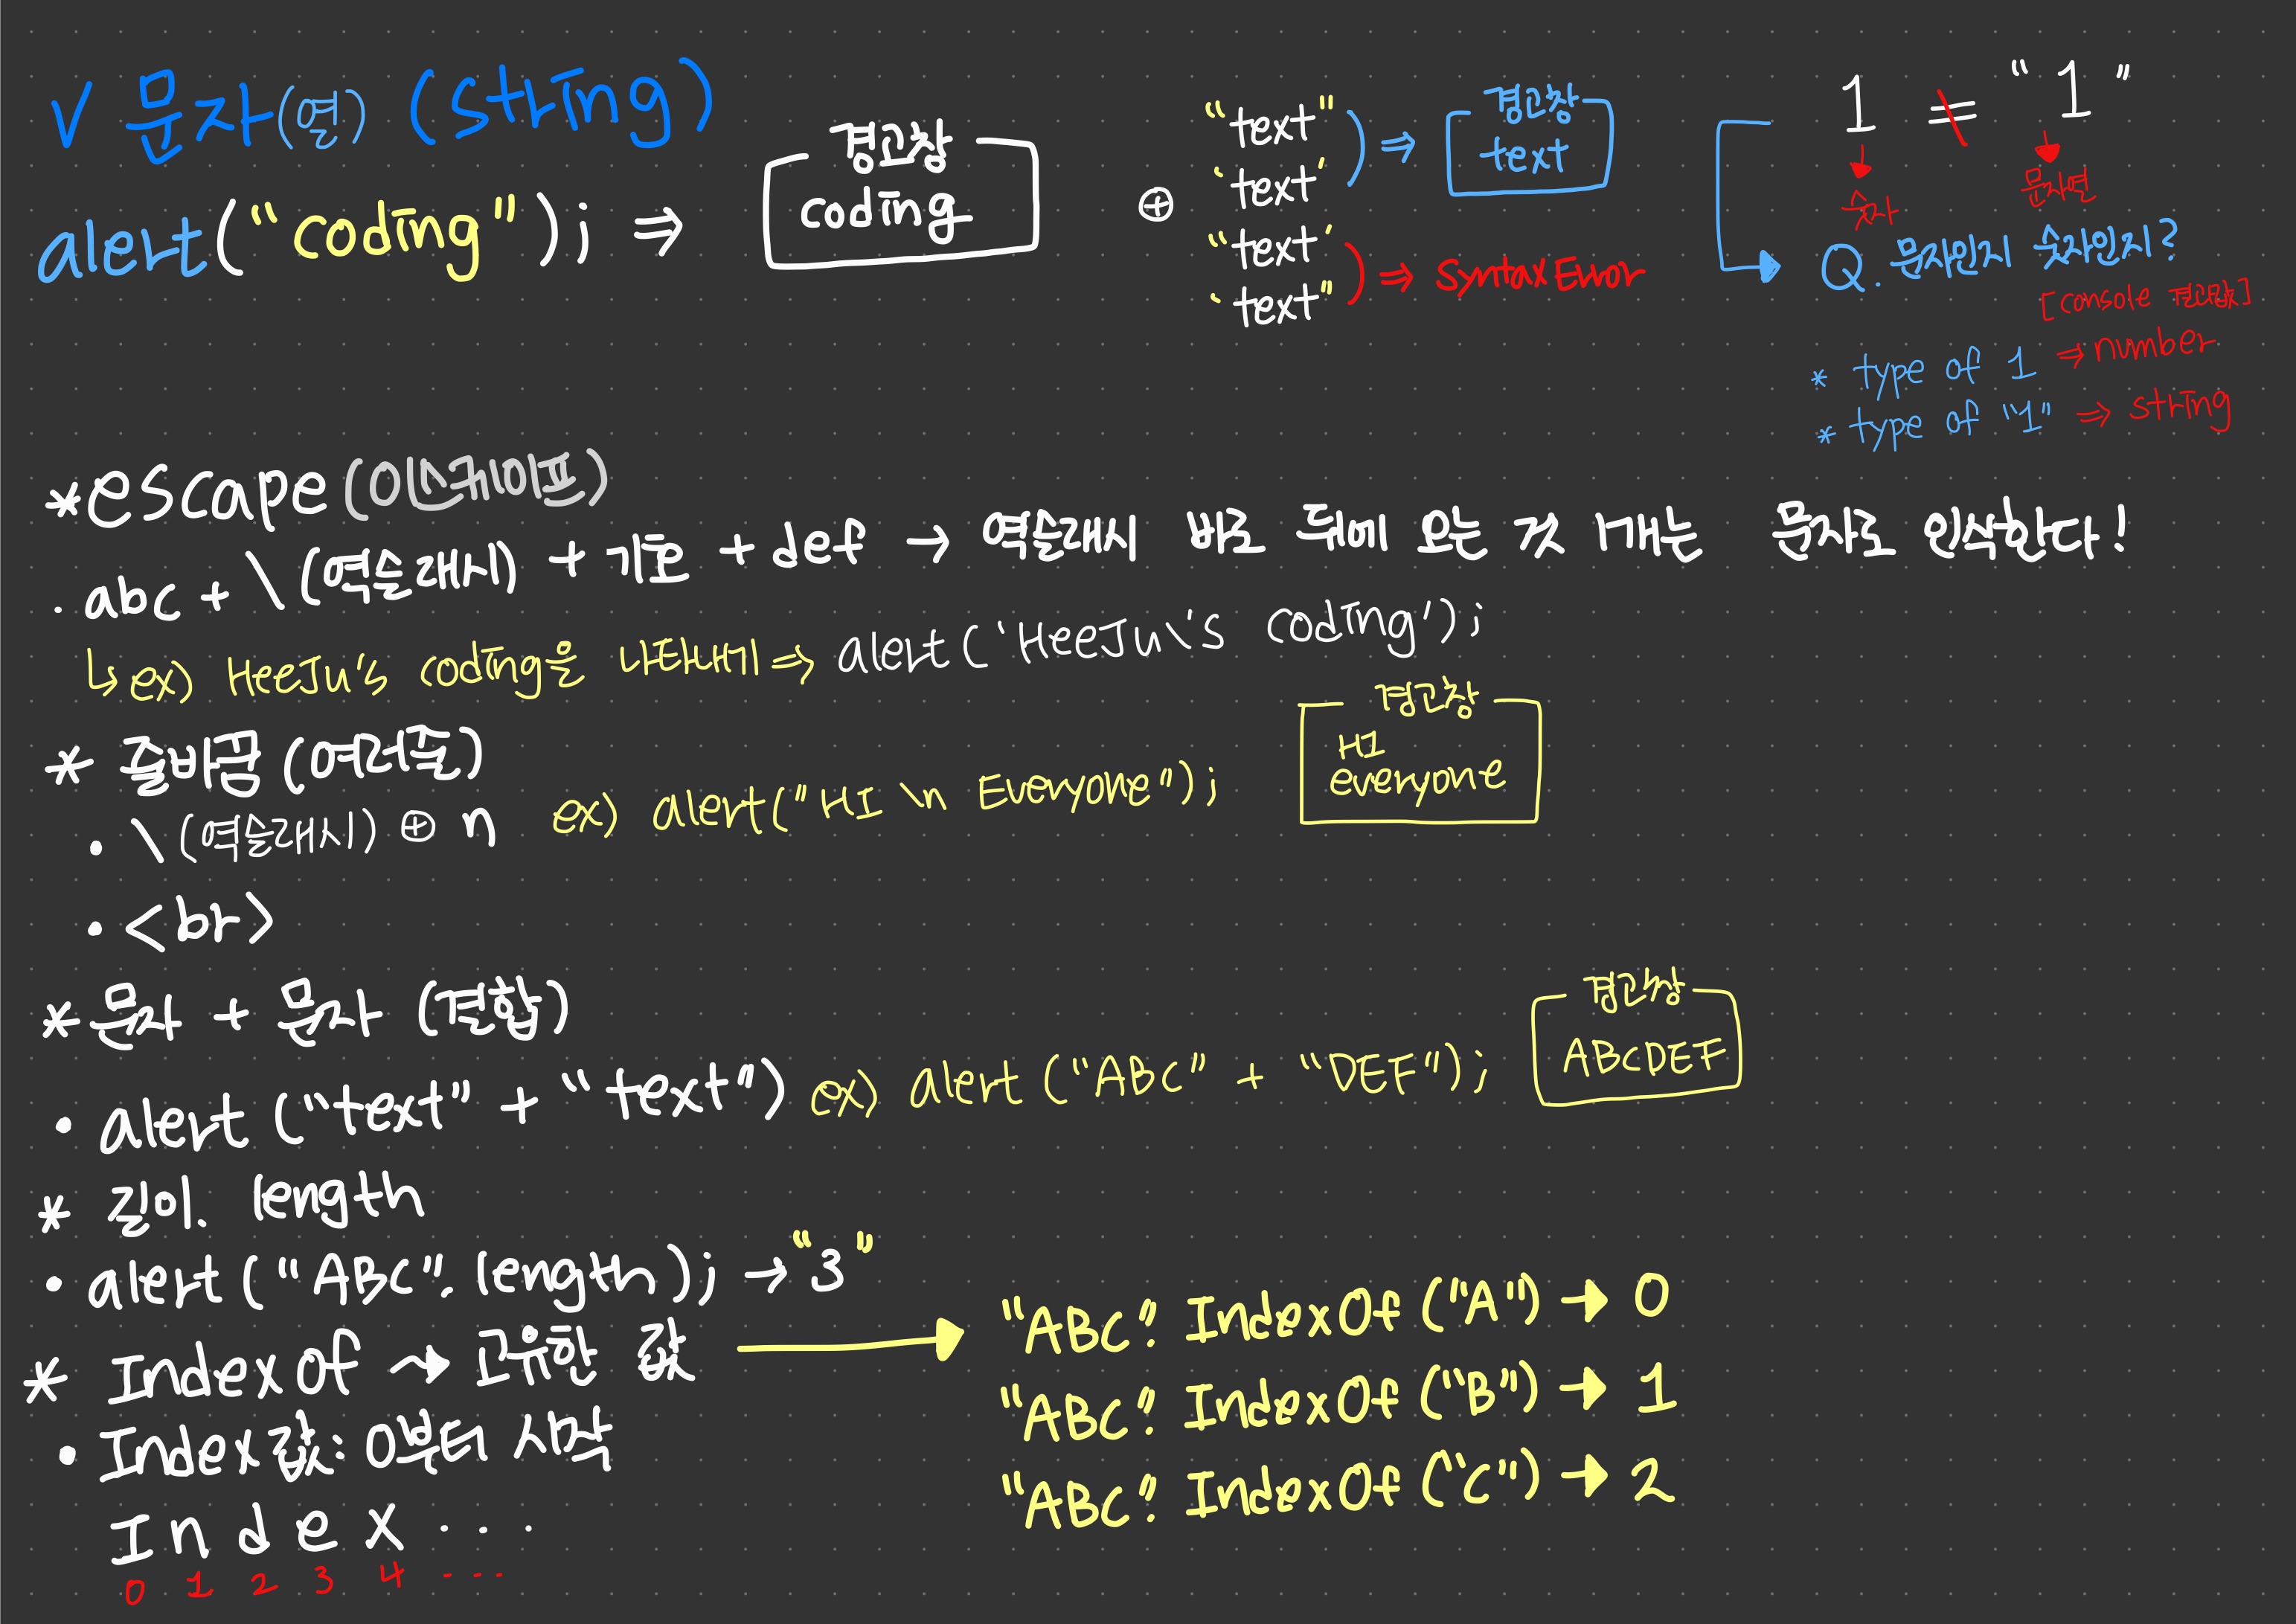 V 문자(열) (string)
alert("coding"); ⇒
경고창
coding
⊕
"text"
'text'
⇒
경고창
text
"text'
'text"
⇒ SyntaxError
1 ≠ "1"
숫자
문자열
Q. 문자인지 숫자인지?
[console 결과값]
* type of 1 → number
* type of "1" ⇒ string
*escape(이스케이프)
· abc + \(역슬래시) + 기호 + def → 역슬래시 바로 뒤에 오는 것 1개는 문자로 인식한다!
↳ ex) HeeJu's coding을 나타내기 ⇒ alert('HeeJu\'s coding');
* 줄바꿈 (여러줄)
· \(역슬래시) ⊕ n ex) alert("HI \n Everyone");
경고창
HI
everyone
· <br>
*문자 + 문자 (결합)
· alert ("text" + "text") ex) alert ("ABC" + "DEF");
경고창
ABCDEF
* 길이. length
· alert ("ABC".length); → "3"
* IndexOf → 고유한 값
· Index값: 0부터 시작
Index...
0 1 2 3 4 ...
"ABC".IndexOf("A") → 0
"ABC".IndexOf("B") → 1
"ABC".IndexOf("C") → 2